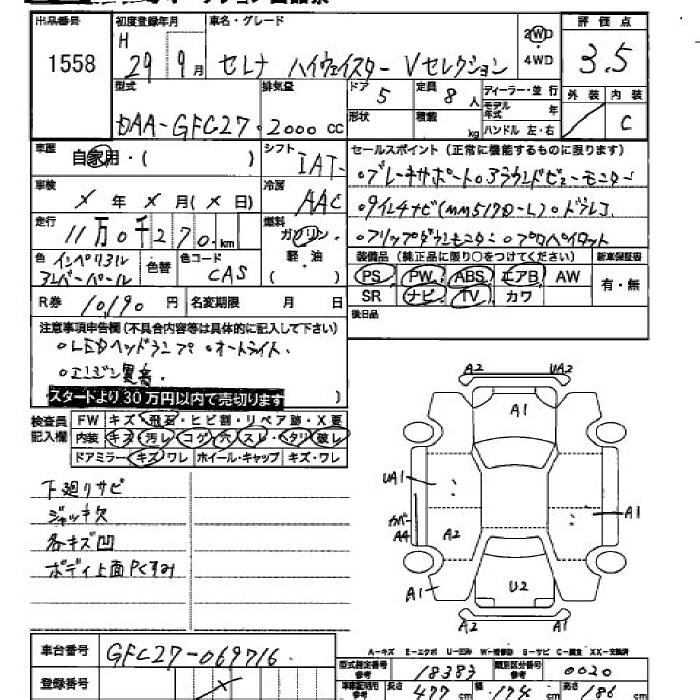 出品番号 初度登録年月 車名・グレード 評価点
1558
H 29年 9月 セレナ ハイウェイスター Vセレクション 2WD ・ 4WD 3.5
型式 排気量 ドア 定員 ディーラー・並行 外装 内装
DAA-GFC27 2000cc 5 8人 モデル年式 年 C
形状 積載 kg ハンドル 左・右
車歴 自家用・( ) シフト IAT セールスポイント (正常に機能するものに限ります)
車検 X年 X月 (X日) 冷房 AAC ○ブレーキサポート○アラウンドビューモニター
○9インチナビ(MM517D-L)○ドラレコ
走行 11万0千270km 燃料 ガソリン 軽・油 ( )
○フリップダウンモニター ○プロパイロット
色 インペリアルアンバーパール 色替 色コード CAS
装備品 (純正品に限り○をつけてください) 新車保証書
PS PW ABS エアB AW 有・無
SR ナビ TV カワ
R券 10,190円 名変期限 月 日
後日品
注意事項申告欄 (不具合内容等は具体的に記入して下さい)
○LEDヘッドランプ ○オートライト
○エンジン異音
スタートより30万円以内で売切ります )
検査員記入欄 FW キズ・飛石・ヒビ割・リペア跡・X要
内装 キズ 汚レ コゲ 穴 スレ ・タリ 破レ
ドアミラー キズ ワレ ホイール・キャップ キズ・ワレ
下廻りサビ
ジャッキ欠
各キズ凹
ボディ上面Pくすみ
A2 UA2
A1
UA1
カバー A4 A2 A1
A1 U2
A2 A1
A-キズ E-エクボ U-凹み W-補修跡 S-サビ C-腐食 XX-交換済
車台番号 GFC27-069716
型式指定番号 参考 18383 類別区分番号 参考 0020
登録番号 X
長さ 477cm 幅 174cm 高さ 186cm